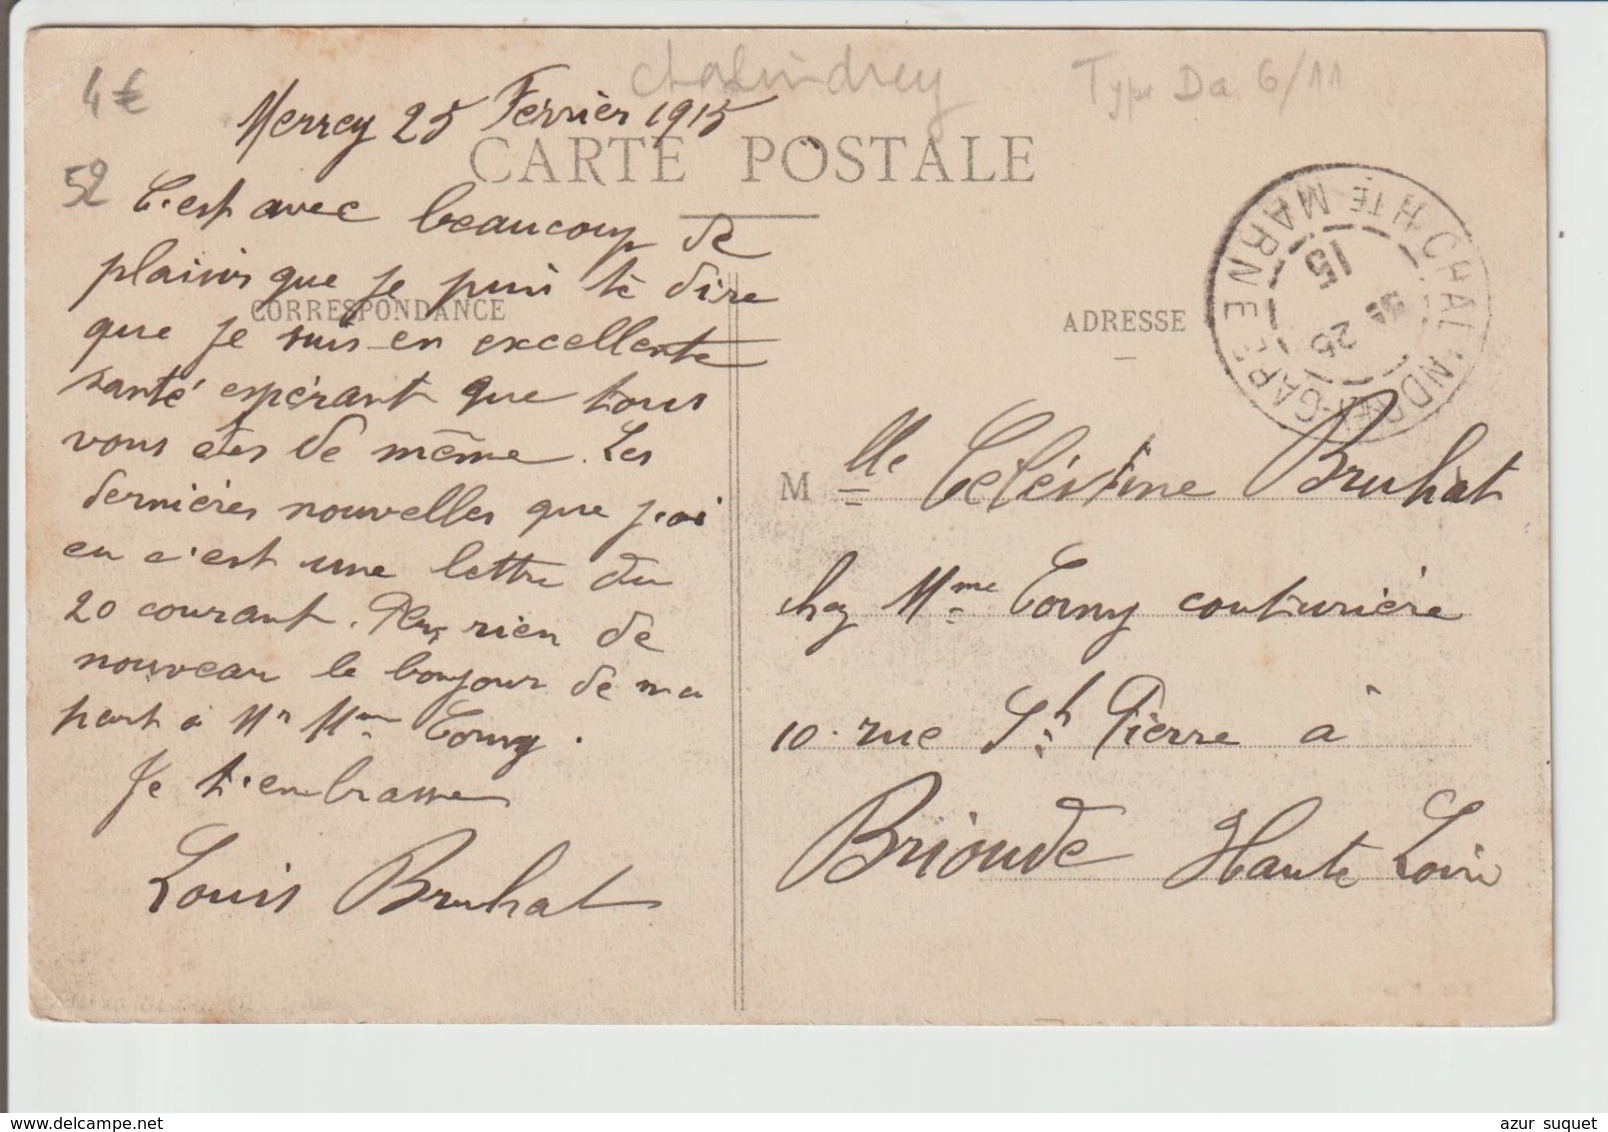 4€
52
Chalindrey
Type Da 6/11
Merrey 25 Fevrier 1915
CARTE POSTALE
C'est avec beaucoup de
plaisir que je puis te dire
que je suis en excellente
santé espérant que tous
vous êtes de même. Les
dernières nouvelles que j'ai
eu c'est une lettre du
20 courant. Plus rien de
nouveau le bonjour de ma
part à Mr Mme Torny.
Je t'embrasse
Louis Bruhat
CORRESPONDANCE
ADRESSE
CHALINDREY-GARE
HTE MARNE
25
15
Mlle Celéstine Bruhat
chez Mme Torny couturière
10 rue St Pierre à
Brioude Haute Loire
azur suquet